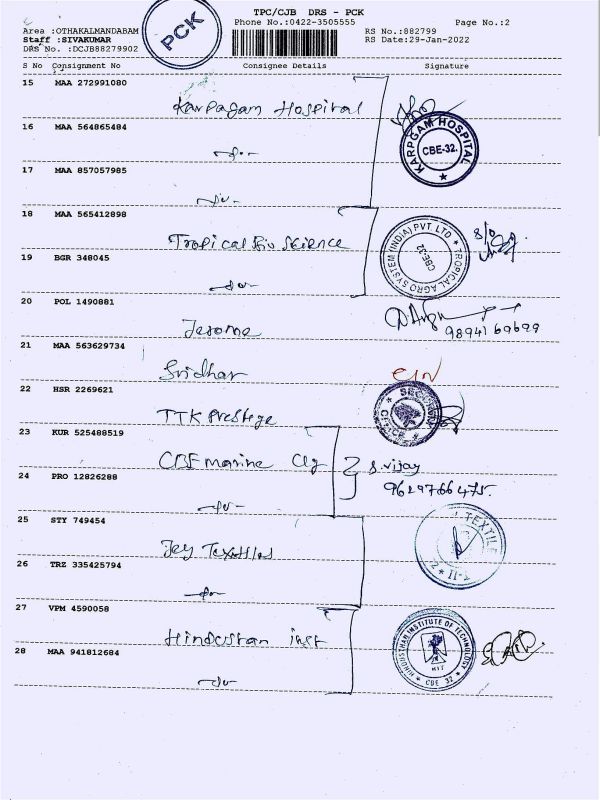 TPC/CJB DRS - PCK
Phone No.:0422-3505555 Page No.:2
Area :OTHAKALMANDABAM RS No.:882799
Staff :SIVAKUMAR RS Date:29-Jan-2022
DRS No. :DCJB88279902
PCK
S No Consignment No Consignee Details Signature
15 MAA 272991080
Karpagam Hospital
KARPGAM HOSPITAL CBE-32.
16 MAA 564865484
17 MAA 857057985
18 MAA 565412898
Tropical Bio Science
TROPICAL AGRO SYSTEM (INDIA) PVT. LTD CBE-32
19 BGR 348045
20 POL 1490881
Jerome
9894169699
21 MAA 563629734
Sridhar
22 HSR 2269621
TTK Prestige
SECURITY
23 KUR 525488519
CBE marine Clg S.vijay
9629766475.
24 PRO 12826288
25 STY 749454
Jey Textiles
TEXTILE
26 TRZ 335425794
27 VPM 4590058
Hindustan inst
HINDUSTHAN INSTITUTE OF TECHNOLOGY HIT CBE 32
28 MAA 941812684